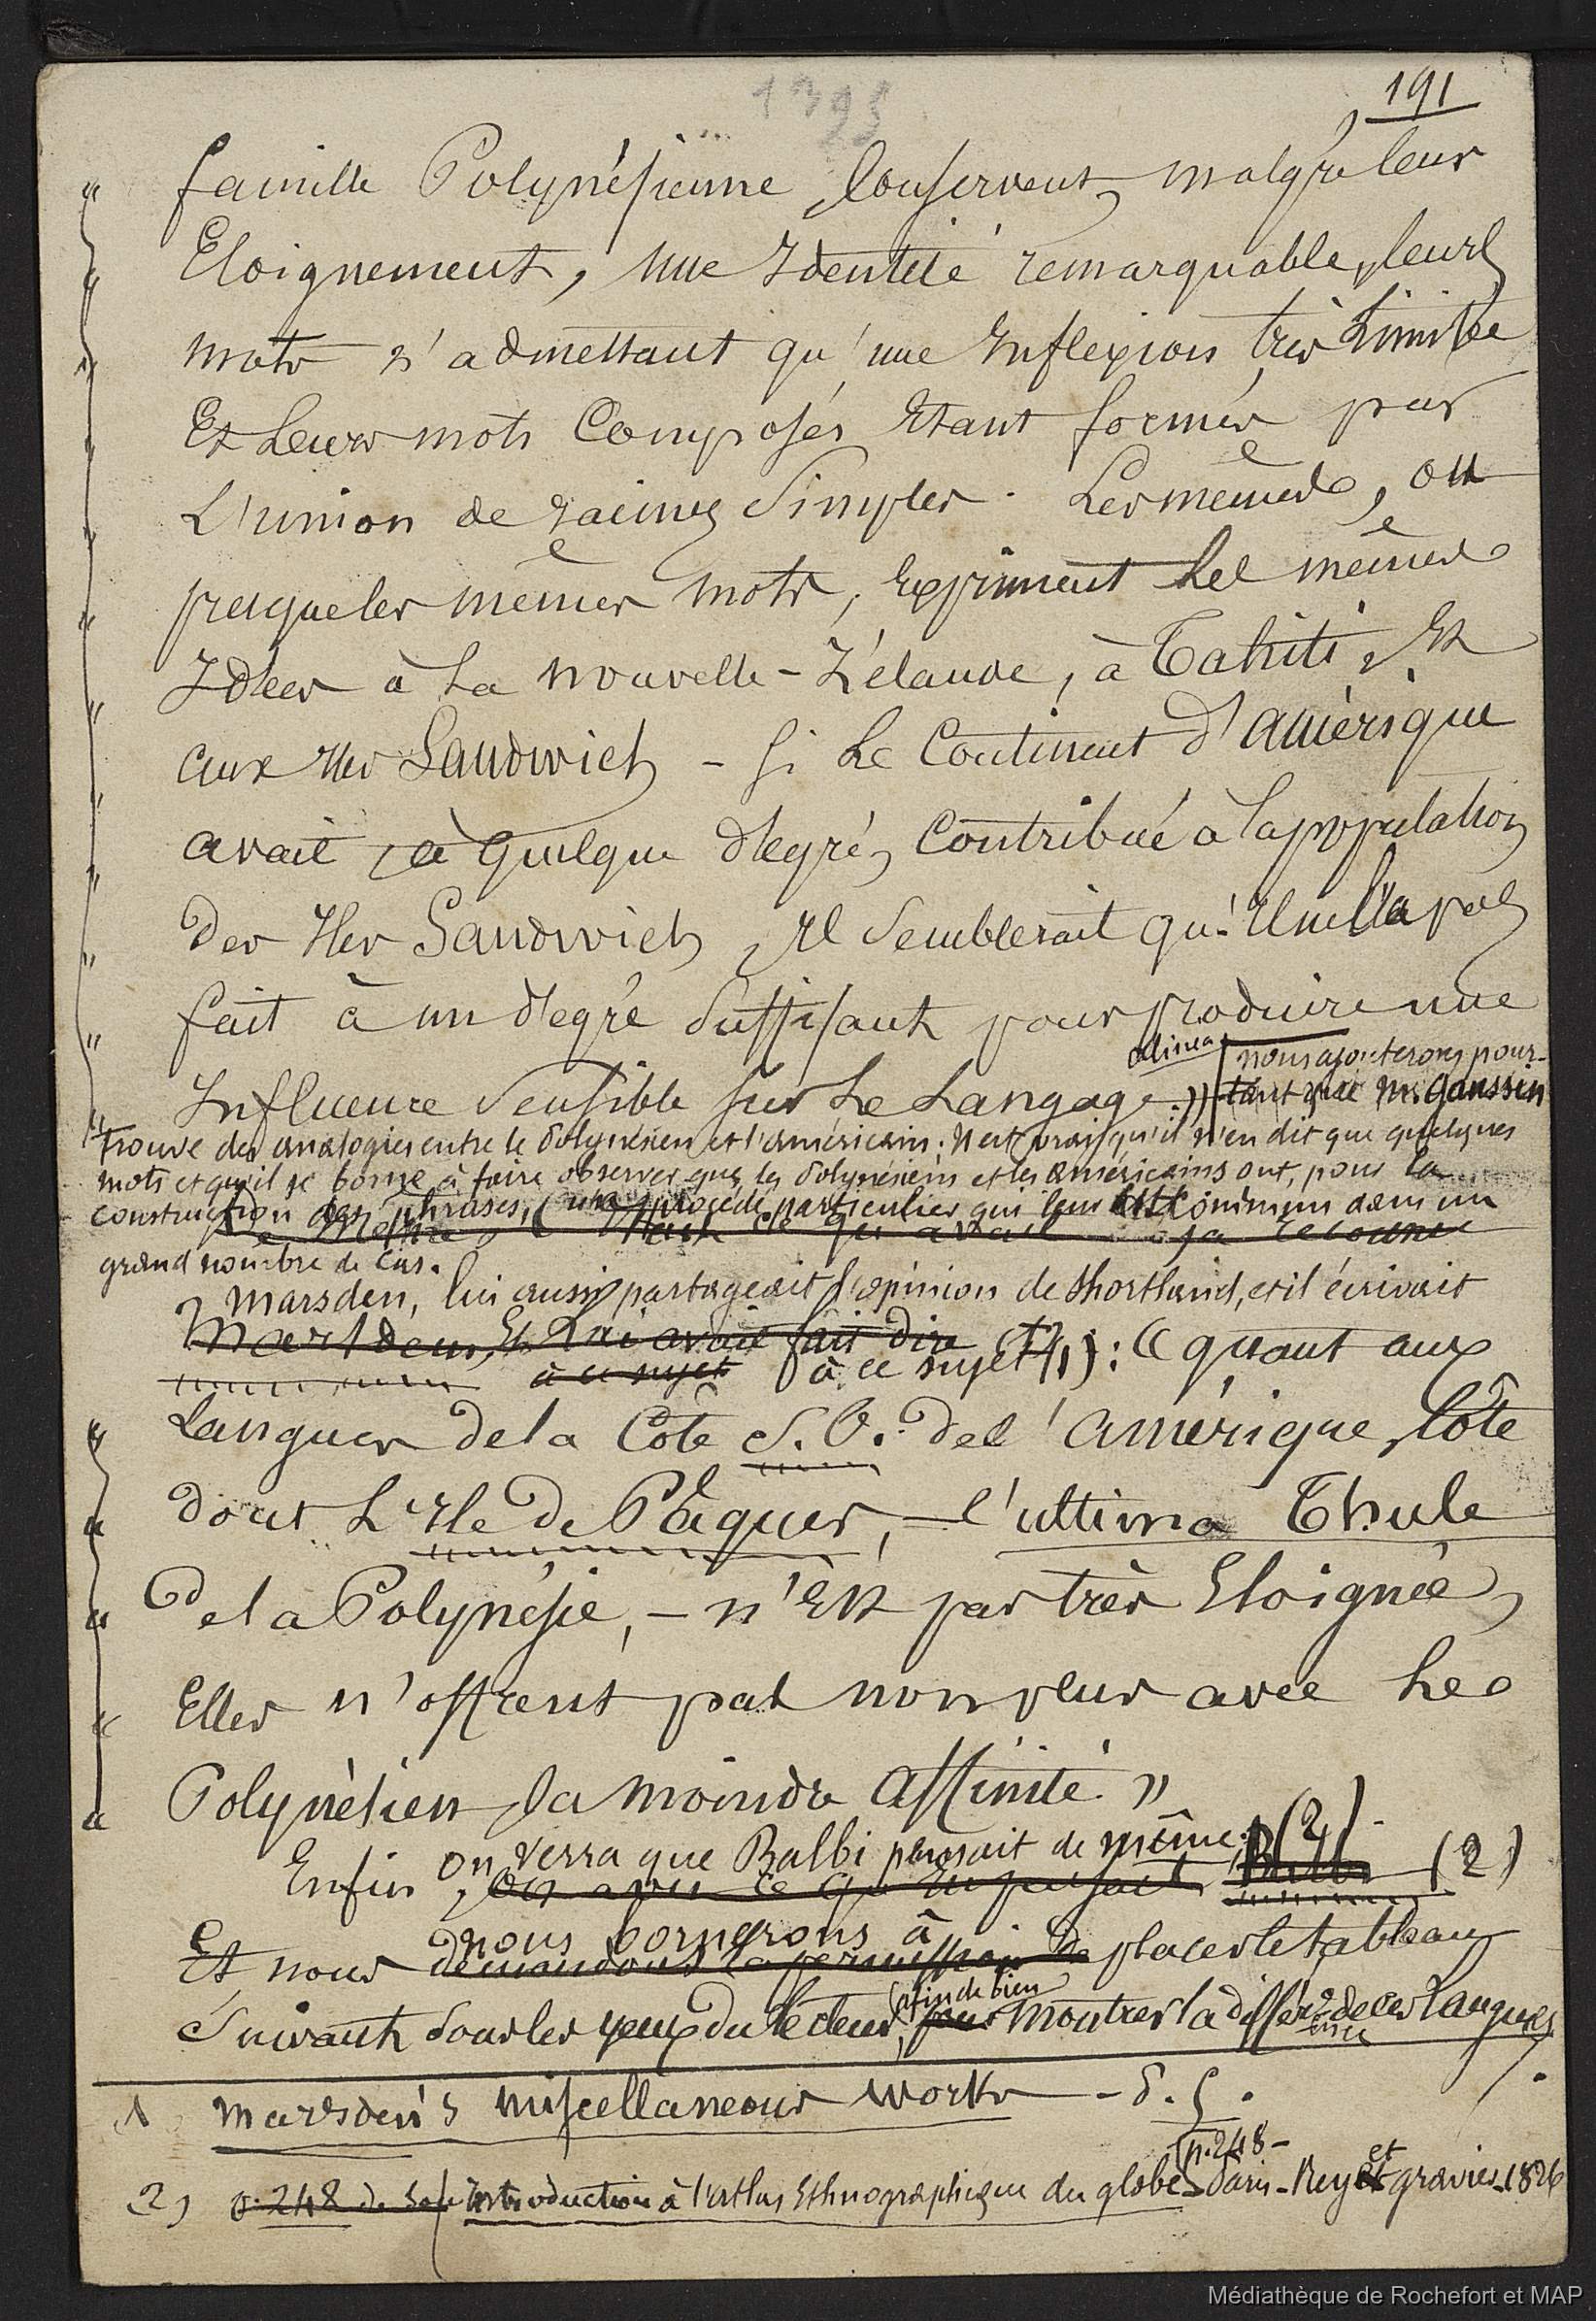 1395
191
famille Polynésienne, conservent, malgré leur
Eloignement, une Identité remarquable, leurs
mots n'admettant qu'une Inflexion très Limitée
Et Leurs mots Composés Etant formés par
L'union de racines Simples. Les mêmes, ou
presque les mêmes mots, Expriment Les mêmes
Idées à La nouvelle-Zélande, à Tahiti, Et
aux Iles Sandwich - Si Le Continent d'Amérique
avait, à quelque degré, Contribué à la population
Des Iles Sandwich, Il Semblerait qu'Il ne l'a pas
fait à un degré Suffisant pour produire une
Influence Sensible sur Le Langage. » alinea nous ajouterons pour-
tant que M. Gaussin
trouve des analogies entre le Polynésien et l'américain. Il est vrai qu'il n'en dit que quelques
mots et qu'il se borne à faire observer que les Polynésiens et les américains ont, pour la
construction des phrases, un procédé particulier qui leur est commun dans un
grand nombre de cas.
Marsden, lui aussi partageait l'opinion de Shortland, et il écrivait
Marsden, Et Lui avait fait dire
à ce sujet à ce sujet (1) : « quant aux
Langues de la Côte S. O. de l'Amérique, Côte
dont L'Ile De Pâques, - l'ultima Thule
De la Polynésie, - n'Est pas très Eloignée,
Elles n'offrent pas non plus avec Les
Polynésiens, la moindre affinité. »
on verra que Balbi pensait de même. (2)
Enfin, Balbi (2)
nous bornerons à
Et nous demandons la permission de placer le tableau
afin de bien
Suivant Sous les yeux du Lecteur, pour montrer la différence de ces Langues.
1 Marsden's miscellaneous Works - S. 5.
p. 248 -
2) p. 248 de Introduction à l'atlas Ethnographique du globe - Paris - Rey et gravier - 1826
Médiathèque de Rochefort et MAP